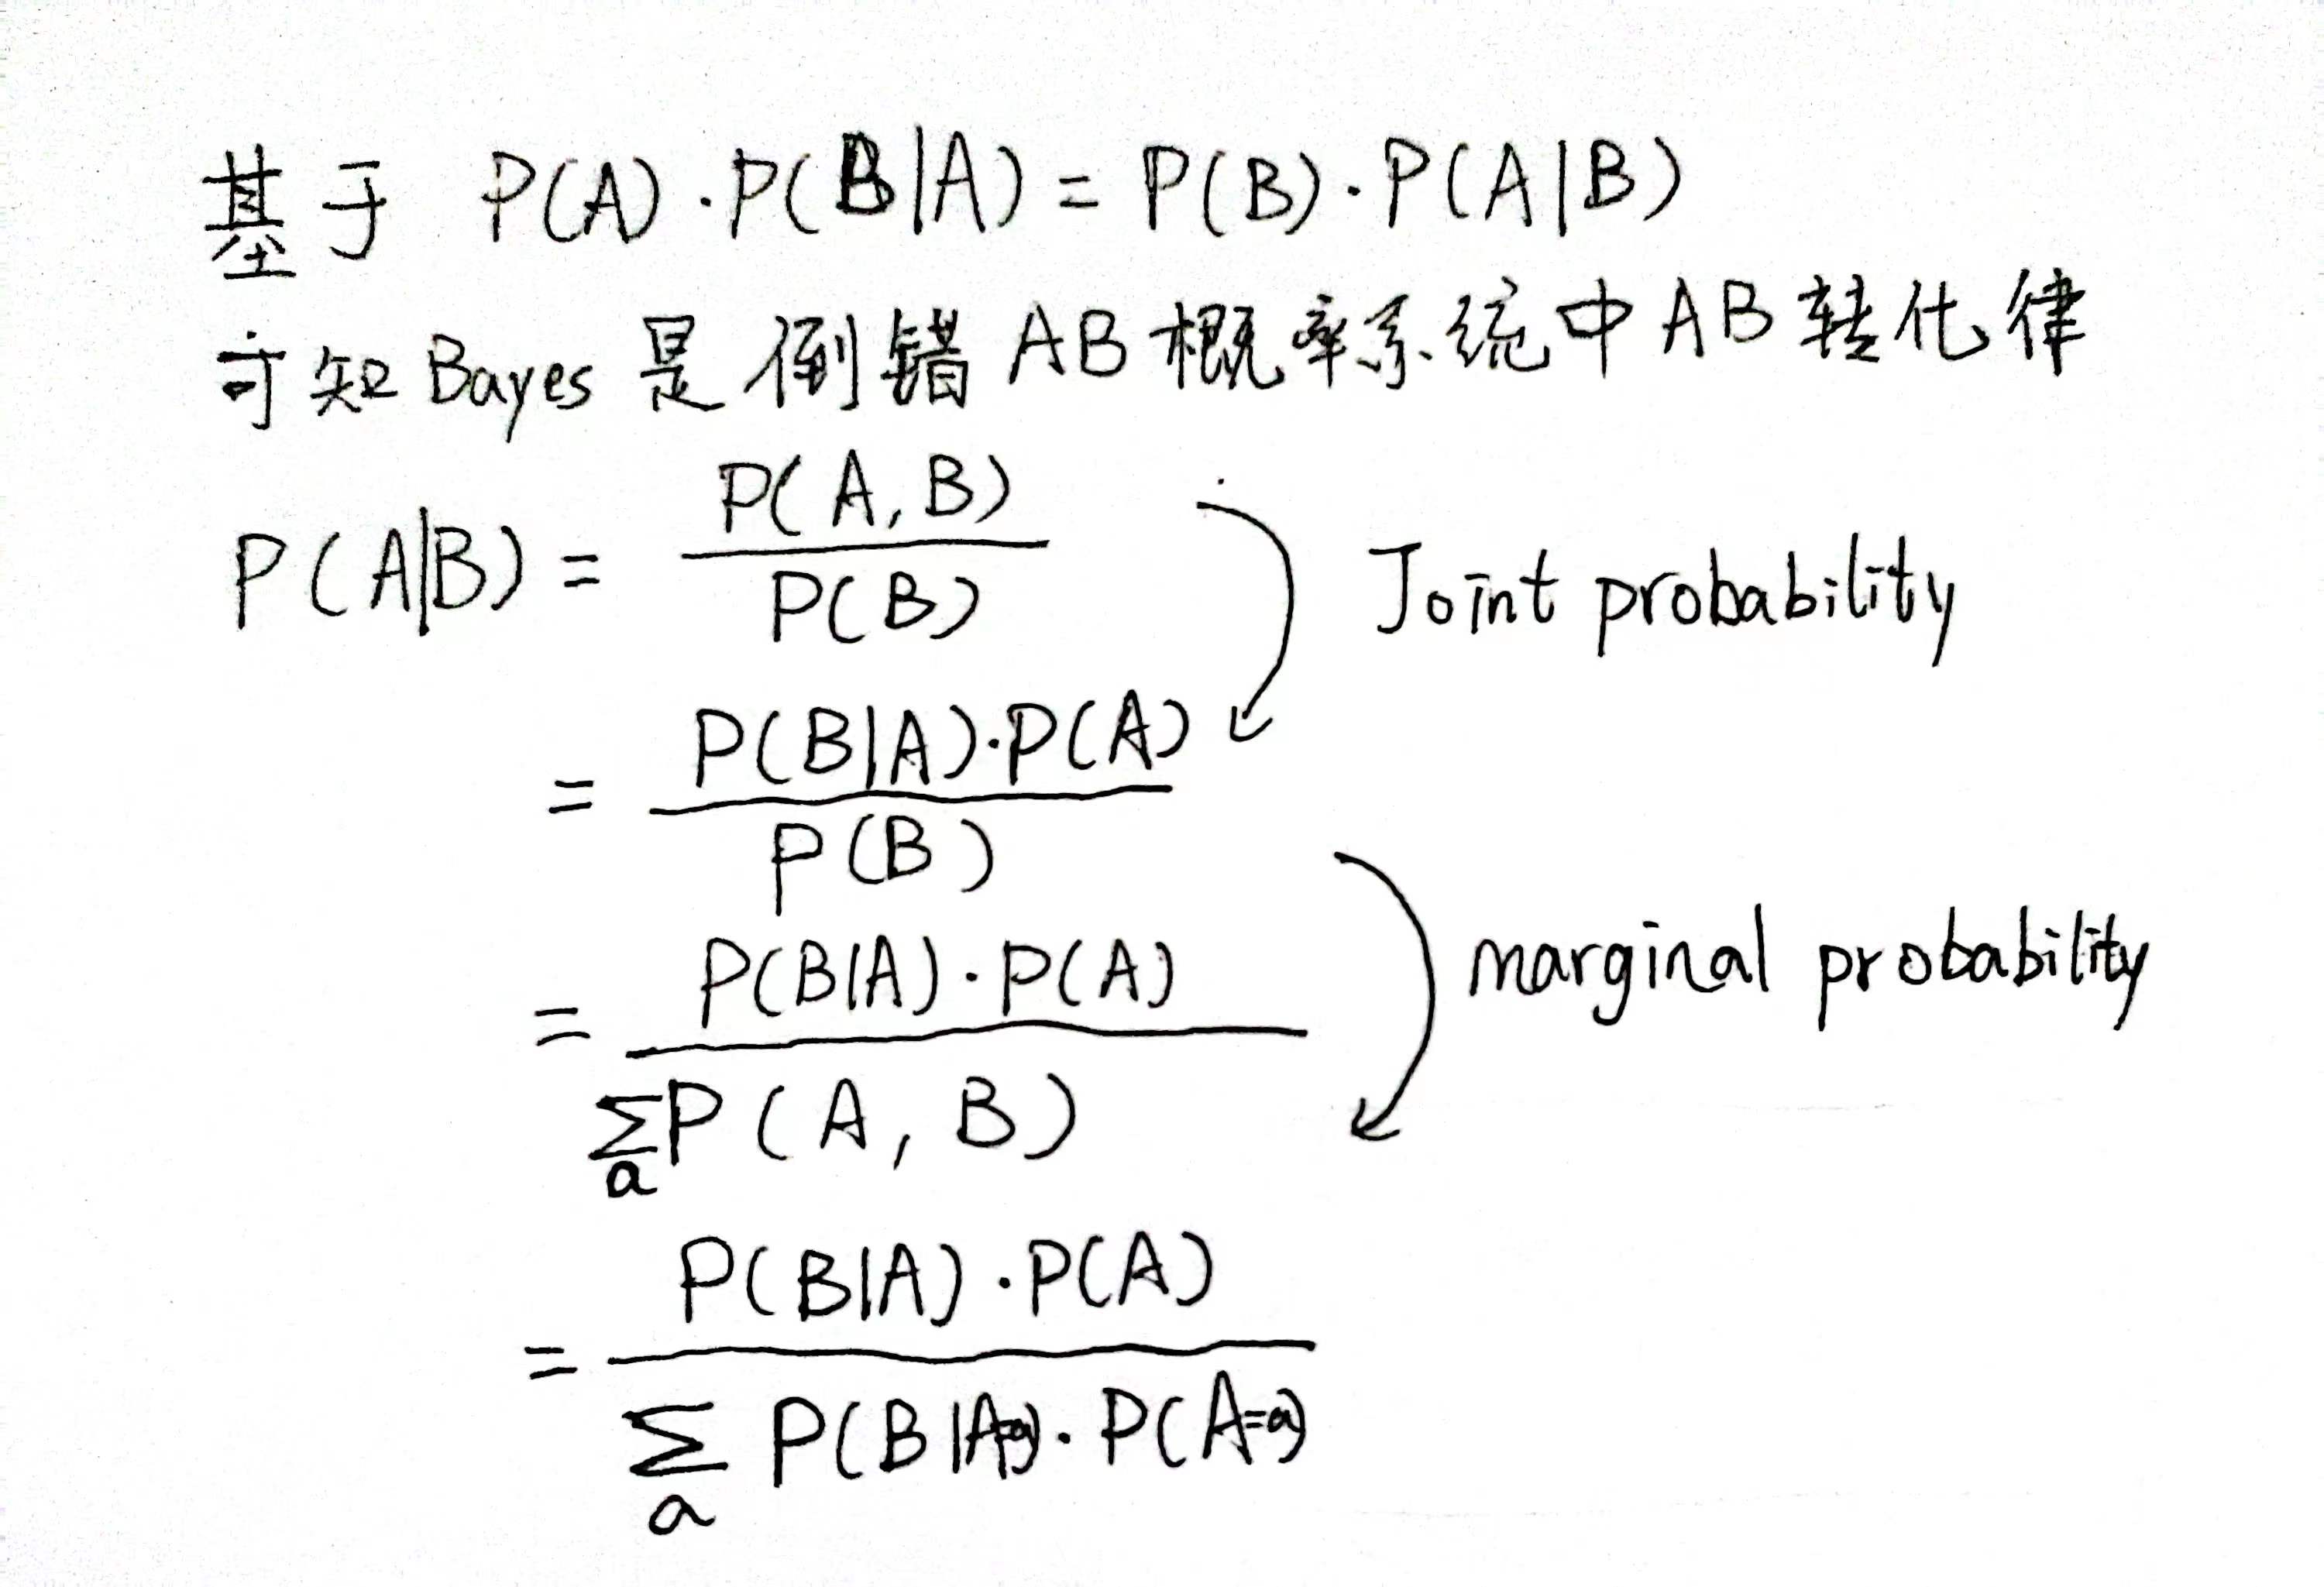 基于 P(A)·P(B|A) = P(B)·P(A|B)
可知 Bayes 是 倒错 AB 概率系统中 AB 转化律
P(A|B) = P(A, B) / P(B)
Joint probability
= P(B|A)·P(A) / P(B)
marginal probability
= P(B|A)·P(A) / ∑a P(A, B)
= P(B|A)·P(A) / ∑a P(B|A=a)·P(A=a)